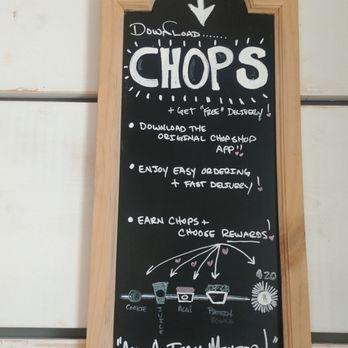 DOWNLOAD......
CHOPS
+ GET "FREE" DELIVERY!
• DOWNLOAD THE
ORIGINAL CHOPSHOP
APP!!
• ENJOY EASY ORDERING
+ FAST DELIVERY!
• EARN CHOPS +
CHOOSE REWARDS!
$20
COOKIE
JUICE
ACAI
PROTEIN
BOWL